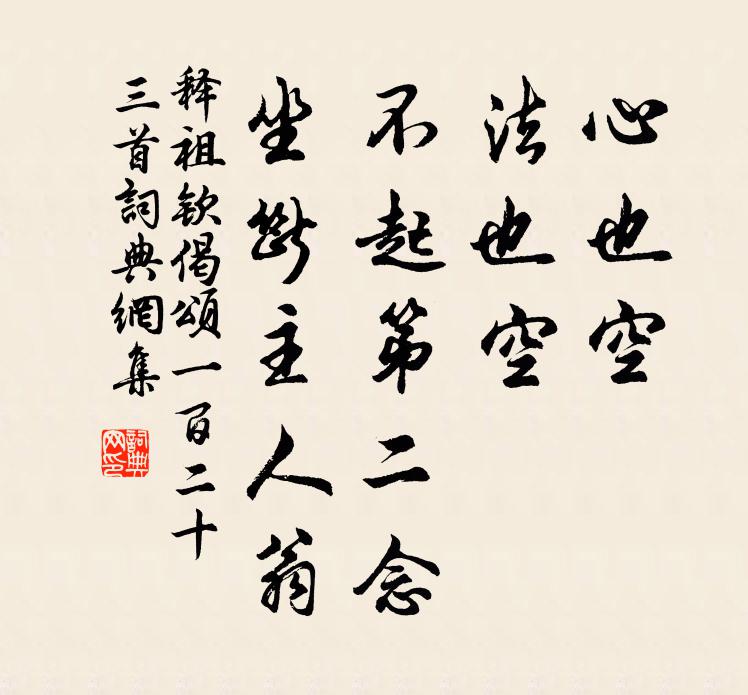 心也空
法也空
不起第二念
坐断主人翁
释祖钦偈颂一百二十
三首詞典網集
詞典网印